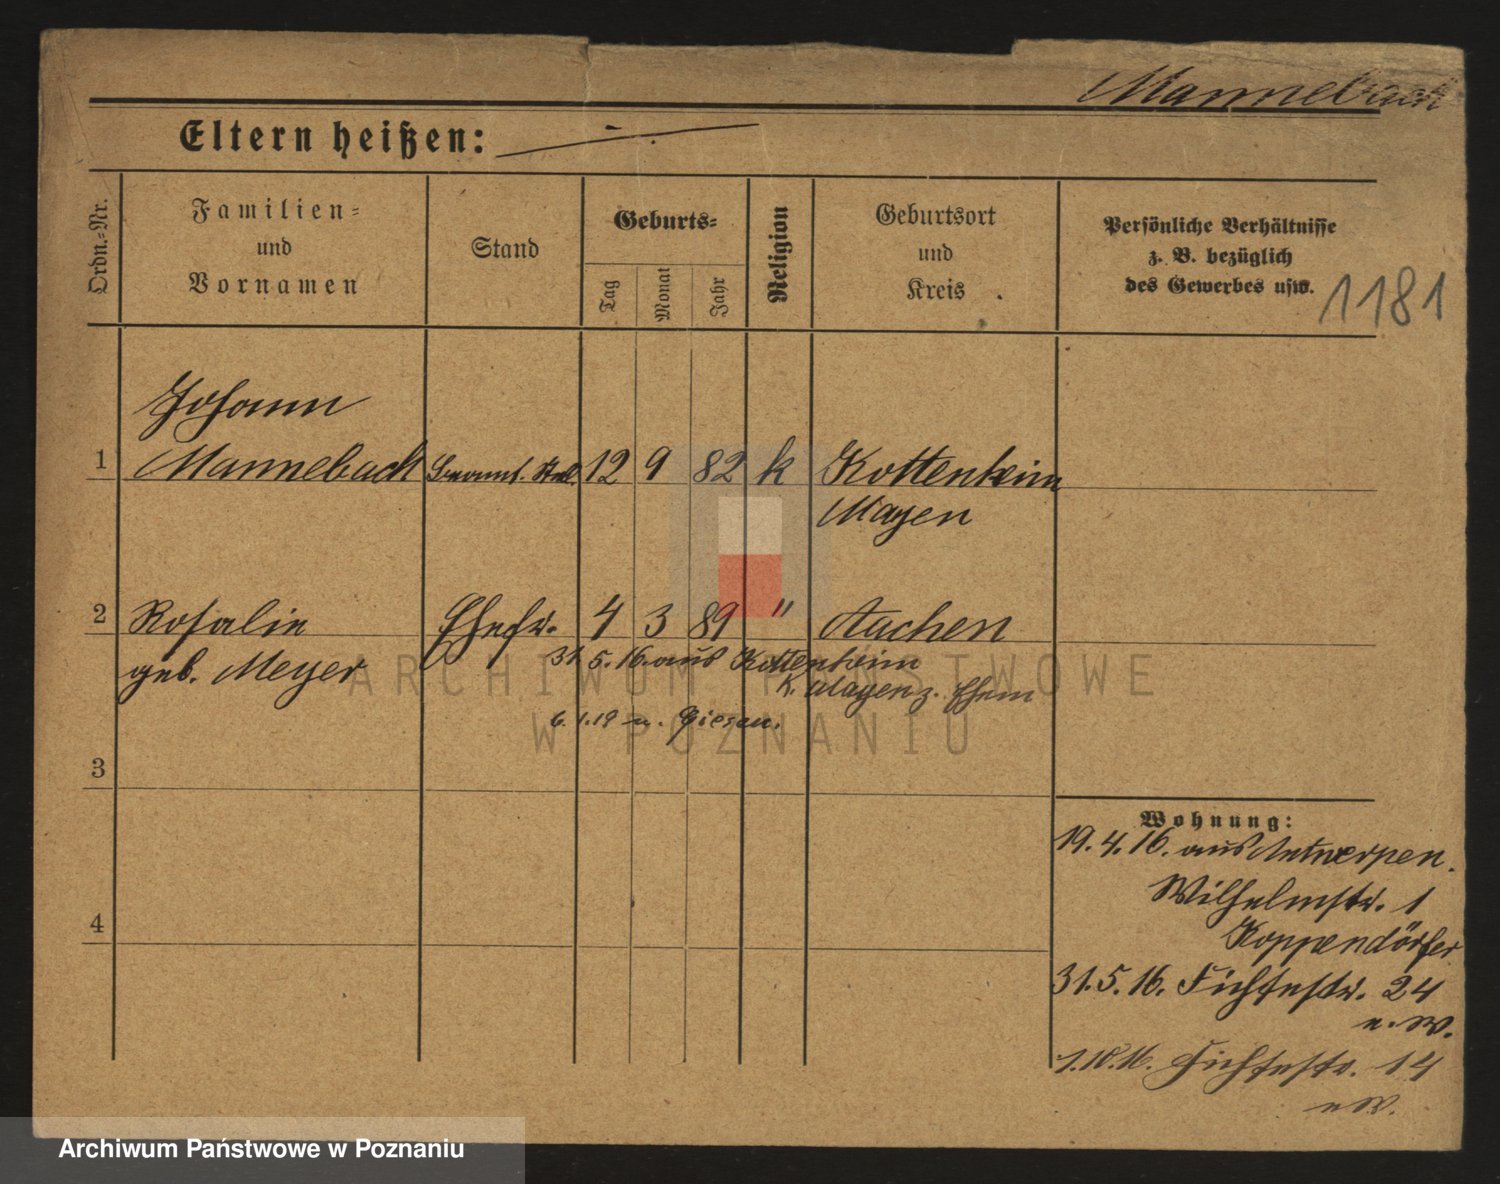 Mannebach
Eltern heißen: —
Ordn.-Nr.
Familien-
und
Vornamen
Stand
Geburts-
Tag
Monat
Jahr
Religion
Geburtsort
und
Kreis
Persönliche Verhältnisse
z. B. bezüglich
des Gewerbes usw.
1181
Johann
1 Mannebach 12 9 82 k Kottenheim
Mayen
2 Rosalie Ehefr. 4 3 89 " Aachen
geb. Meyer
31.5.16. aus Kottenheim
K. Mayen z. Ehem
6.1.19 n.
3
4
Wohnung:
19.4.16. aus Antwerpen.
Wilhelmstr. 1
Koppendörfer
31.5.16. Fichtestr. 24
e. W.
1.10.16. Fichtestr. 14
e W.
ARCHIWUM PAŃSTWOWE
W POZNANIU
Archiwum Państwowe w Poznaniu